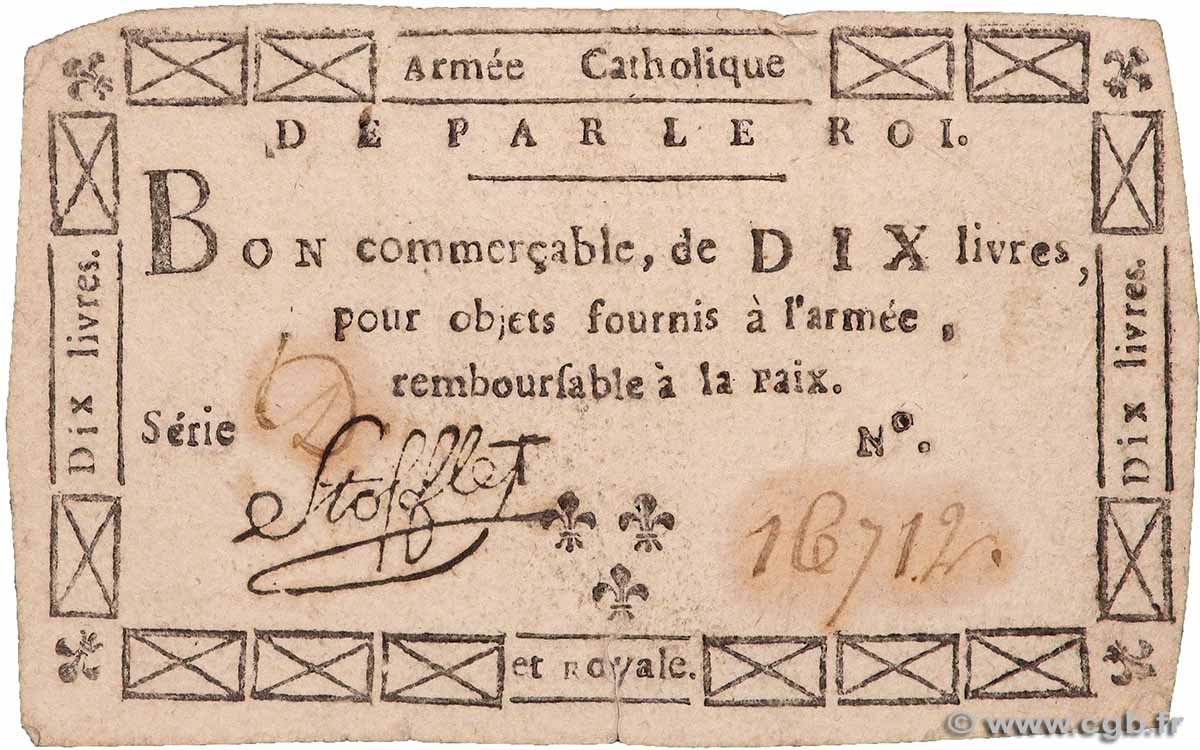 Armée Catholique
DE PAR LE ROI.
BON commerçable, de DIX livres,
pour objets fournis à l'armée,
remboursable à la paix.
Série D
N°.
Stofflet
16712.
et ROYALE.
Dix livres.
Dix livres.
© www.cgb.fr